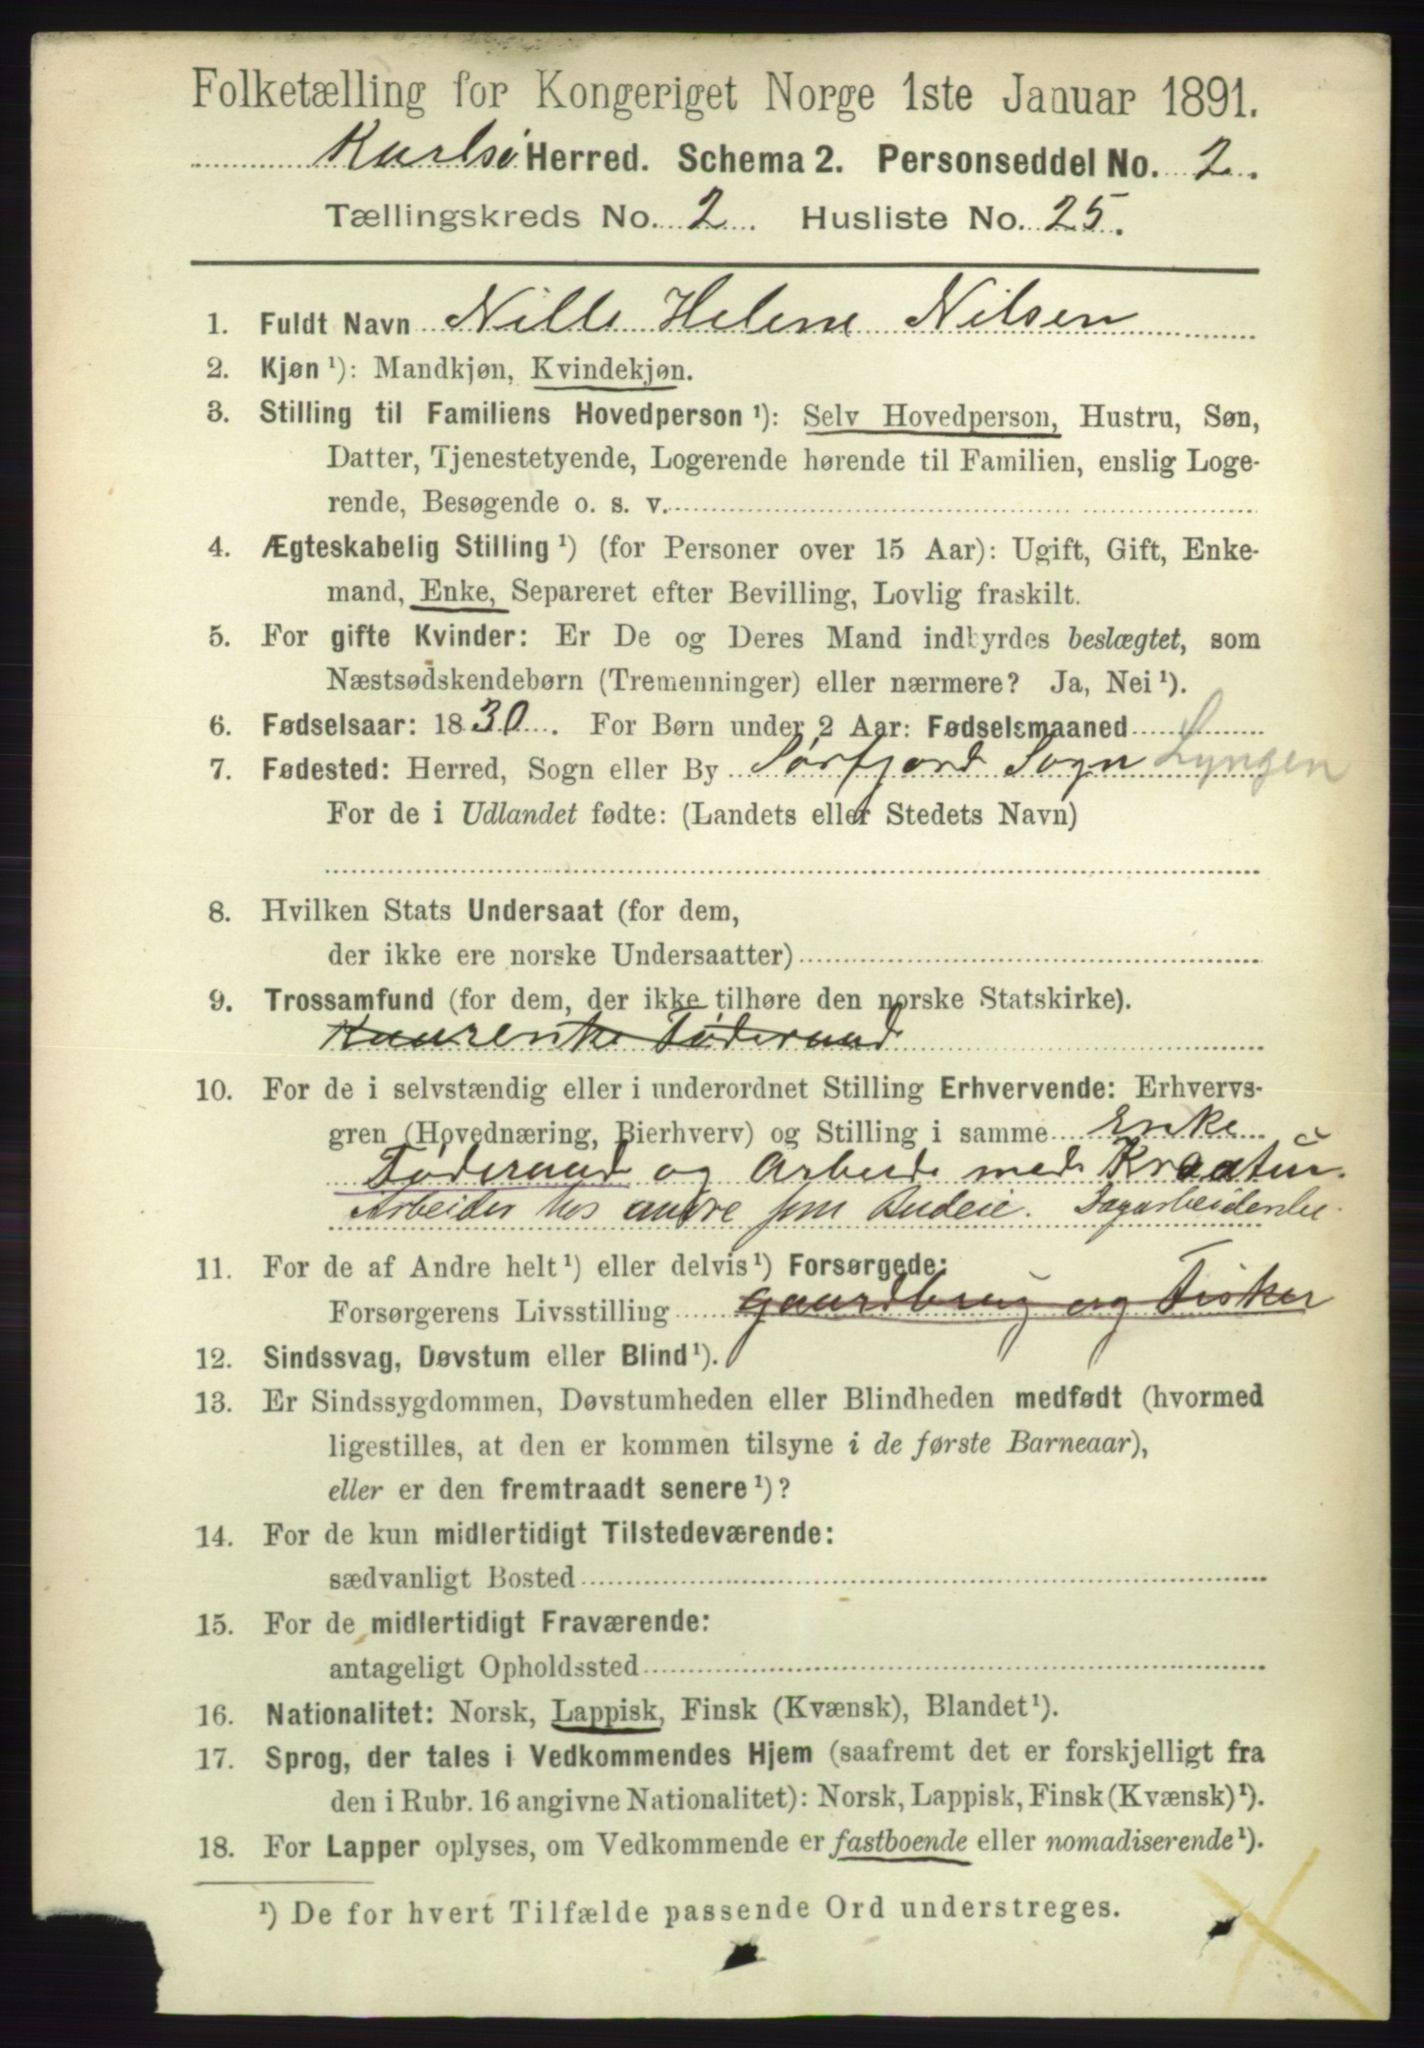 Folketælling for Kongeriget Norge 1ste Januar 1891.
Karlsø Herred. Schema 2. Personseddel No. 2.
Tællingskreds No. 2. Husliste No. 25.
1. Fuldt Navn Nille Helene Nilsen
2. Kjøn ¹): Mandkjøn, Kvindekjøn.
3. Stilling til Familiens Hovedperson ¹): Selv Hovedperson, Hustru, Søn,
Datter, Tjenestetyende, Logerende hørende til Familien, enslig Loge-
rende, Besøgende o. s. v.
4. Ægteskabelig Stilling ¹) (for Personer over 15 Aar): Ugift, Gift, Enke-
mand, Enke, Separeret efter Bevilling, Lovlig fraskilt.
5. For gifte Kvinder: Er De og Deres Mand indbyrdes beslægtet, som
Næstsødskendebørn (Tremenninger) eller nærmere? Ja, Nei ¹).
6. Fødselsaar: 1830. For Børn under 2 Aar: Fødselsmaaned
7. Fødested: Herred, Sogn eller By Sørfjord Sogn Lyngen
For de i Udlandet fødte: (Landets eller Stedets Navn)
8. Hvilken Stats Undersaat (for dem,
der ikke ere norske Undersaatter)
9. Trossamfund (for dem, der ikke tilhøre den norske Statskirke).
Føderaad
10. For de i selvstændig eller i underordnet Stilling Erhvervende: Erhvervs-
gren (Hovednæring, Bierhverv) og Stilling i samme Enke
Føderaad og Arbeide med Kreatur.
Arbeider hos andre som Budeie. Dagarbeiderske
11. For de af Andre helt ¹) eller delvis ¹) Forsørgede:
Forsørgerens Livsstilling gaardbrug og Fisker
12. Sindssvag, Døvstum eller Blind ¹).
13. Er Sindssygdommen, Døvstumheden eller Blindheden medfødt (hvormed
ligestilles, at den er kommen tilsyne i de første Barneaar),
eller er den fremtraadt senere ¹)?
14. For de kun midlertidigt Tilstedeværende:
sædvanligt Bosted
15. For de midlertidigt Fraværende:
antageligt Opholdssted
16. Nationalitet: Norsk, Lappisk, Finsk (Kvænsk), Blandet ¹).
17. Sprog, der tales i Vedkommendes Hjem (saafremt det er forskjelligt fra
den i Rubr. 16 angivne Nationalitet): Norsk, Lappisk, Finsk (Kvænsk) ¹).
18. For Lapper oplyses, om Vedkommende er fastboende eller nomadiserende ¹).
¹) De for hvert Tilfælde passende Ord understreges.